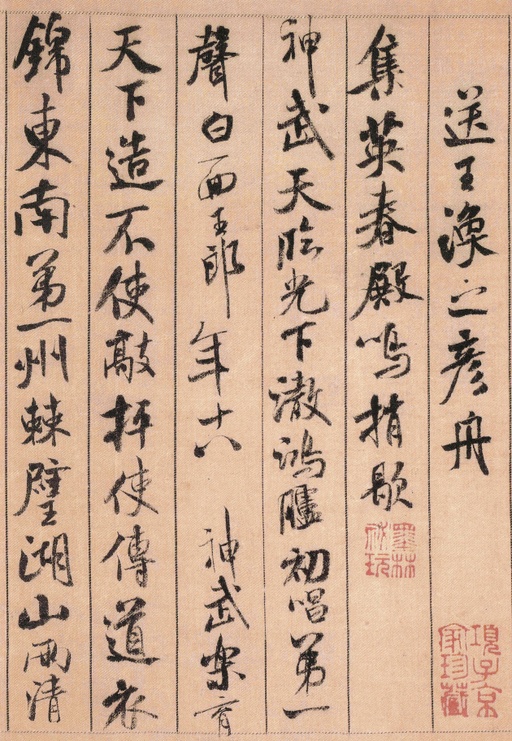 送王渙之彥舟
集英春殿鳴捎歇
神武天臨光下澈鴻臚初唱第一
聲白面玉郎年十八神武樂育
天下造不使敲抨使傳道衣
錦東南第一州棘璧湖山兩清
墨林秘玩
項子京家珍藏